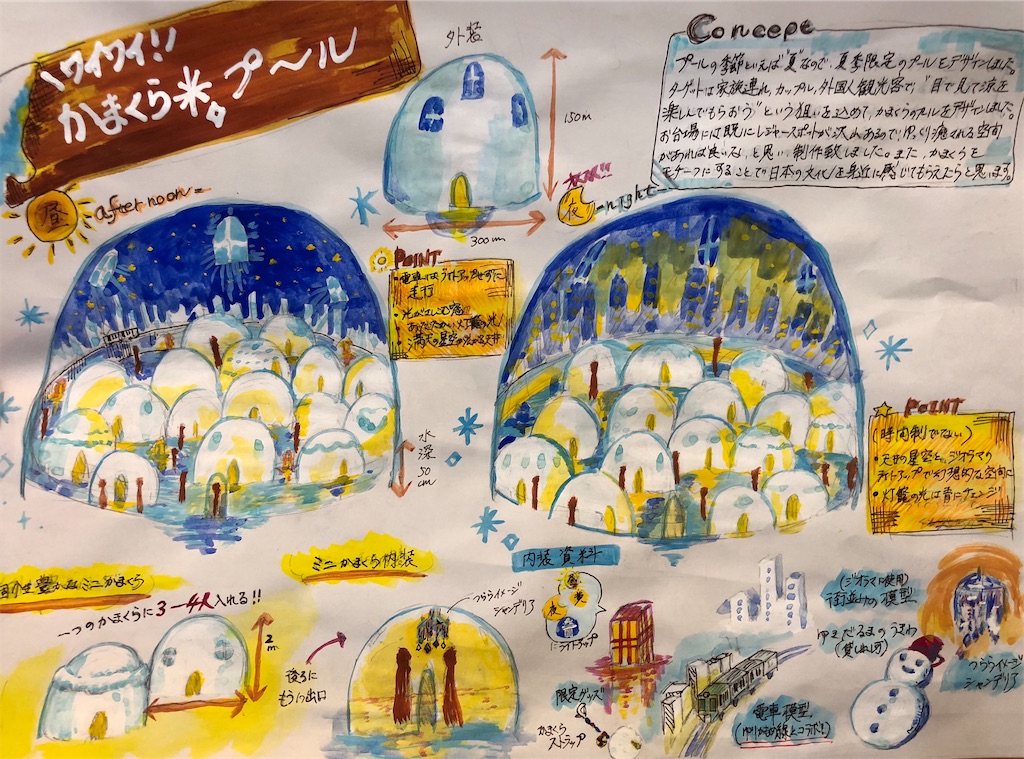 \ワイワイ!!
かまくら プ〜ル
外装
150m
300m
Concept
プールの季節といえば"夏"なので、夏季限定のプールをデザインしました。
ターゲットは家族連れ、カップル、外国人観光客で"目で見て涼を
楽しんでもらおう"という狙いを込めて、かまくらのプールをデザインしました。
お台場には既にレジャースポットが沢山あるので、ゆっくり癒される空間
があれば良いな、と思い、制作致しました。また、かまくらを
モチーフにすることで日本の文化を身近に感じてもらえたらと思います。
昼 afternoon
夜 night
POINT
・電車はライトアップせずに
走行
あたたかい灯籠の光
・満天の星空の広がる天井
水深50cm
POINT
(時間制でない)
・天井の星空と、ジオラマの
ライトアップで幻想的な空間に
・灯籠の光は青にチェンジ
個性豊かなミニかまくら
一つのかまくらに3〜4人入れる!!
2m
ミニかまくら内装
つららイメージ
シャンデリア
後ろに
もう1つ出口
内装資料
昼
夜
にライトアップ
限定グッズ
かまくら
ストラップ
(ジオラマに使用)
街並みの模型
電車模型
(ゆりかもめ線とコラボ!)
ゆきだるまのうきわ
(貸し出し可)
つららイメージ
シャンデリア